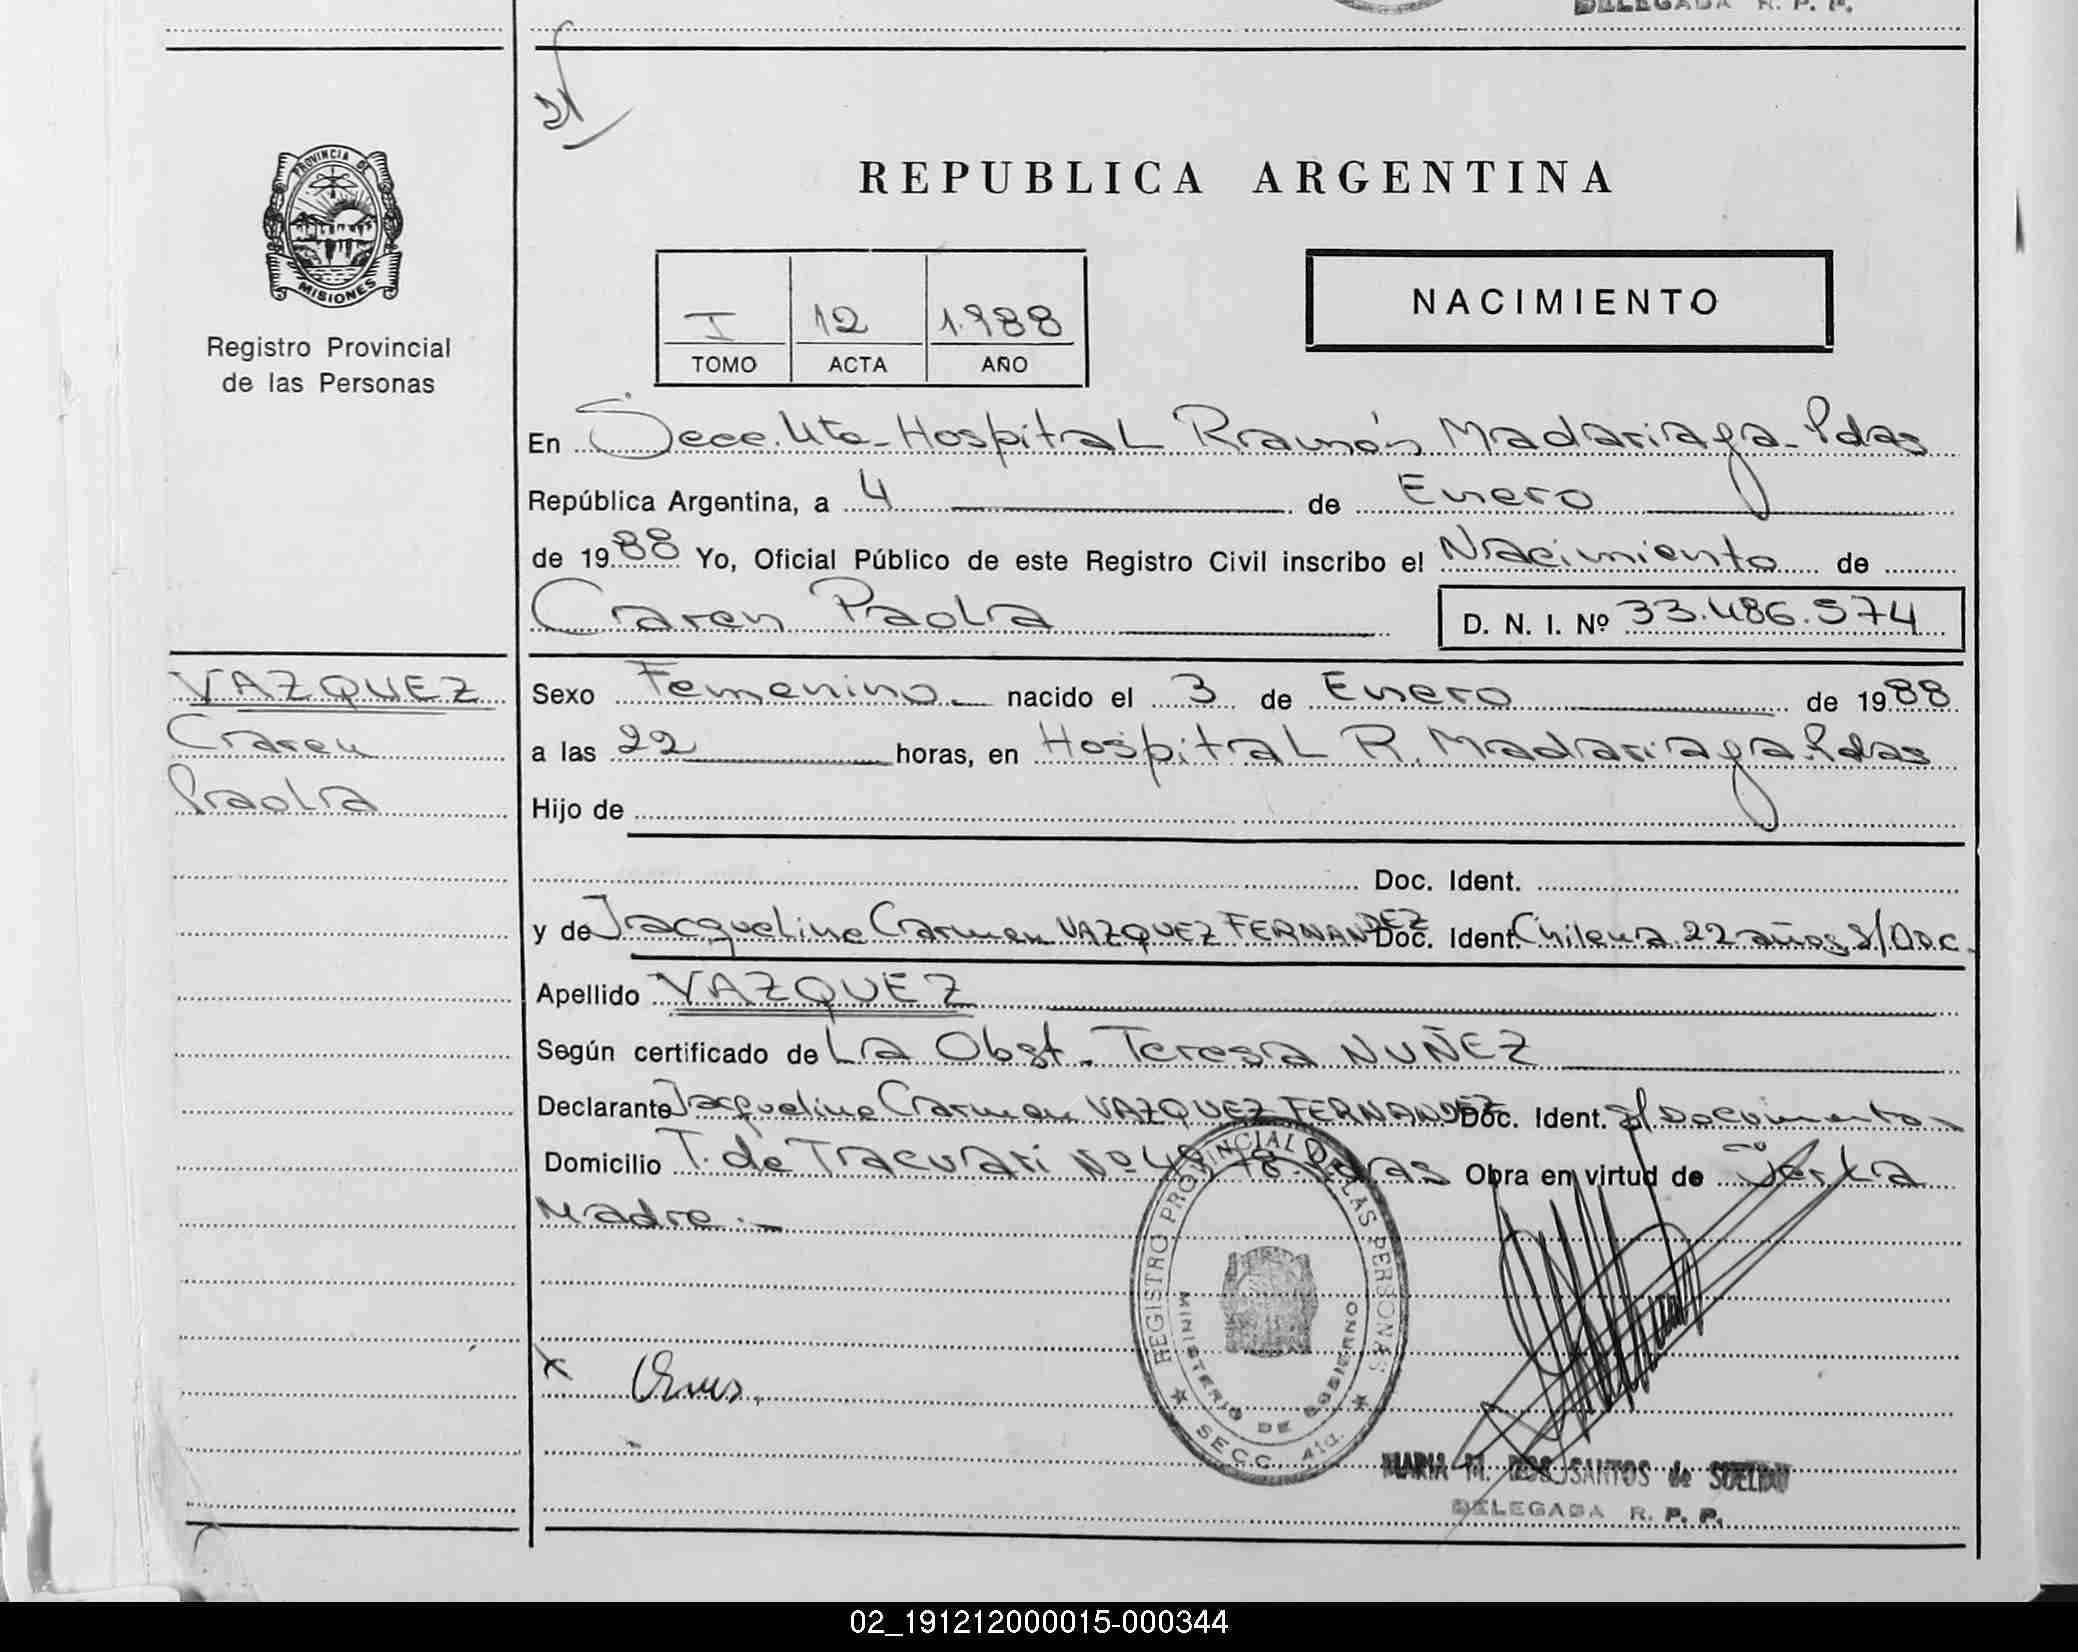 DELEGADA R. P. P.
PROVINCIA DE
MISIONES
Registro Provincial
de las Personas
REPUBLICA ARGENTINA
I 12 1.988
TOMO ACTA AÑO
NACIMIENTO
En Secc. 4ta- Hospital Ramón Madariaga- Pdas
República Argentina, a 4 de Enero
de 1988 Yo, Oficial Público de este Registro Civil inscribo el Nacimiento de
Caren Paola D. N. I. Nº 33.486.574
VAZQUEZ
Caren
Paola
Sexo Femenino nacido el 3 de Enero de 1988
a las 22 horas, en Hospital R. Madariaga. Pdas
Hijo de
Doc. Ident.
y de Jacqueline Carmen VAZQUEZ FERNANDEZ Doc. Ident. Chilena 22 años s/Doc.
Apellido VAZQUEZ
Según certificado de La Obst. Teresa NUÑEZ
Declarante Jacqueline Carmen VAZQUEZ FERNANDEZ Doc. Ident. s/Documento
Domicilio T. de Tacuari Nº Pdas Obra en virtud de ser La
Madre.-
REGISTRO PROVINCIAL DE LAS PERSONAS
MINISTERIO DE GOBIERNO
SECC. 4ta.
x
MARIA M. DOS SANTOS de SUELDO
DELEGADA R. P. P.
02_191212000015-000344